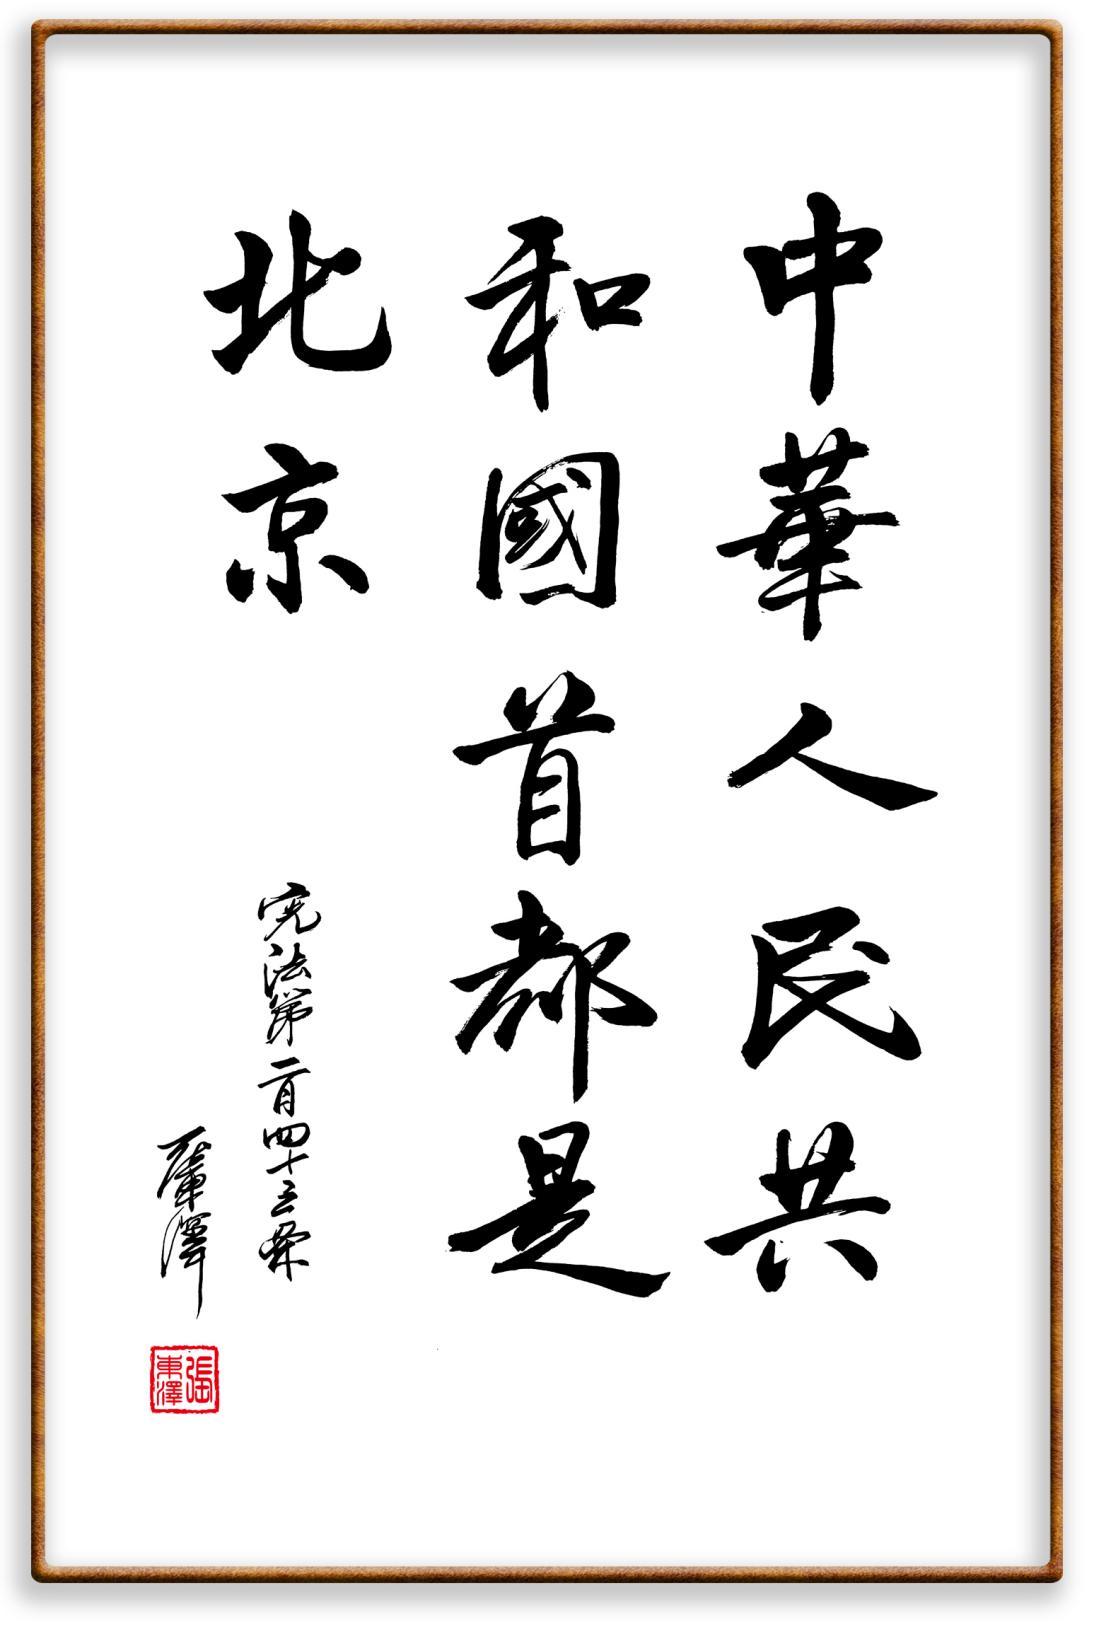 中華人民共
和國首都是
北京
宪法第一百四十三条
張東澤